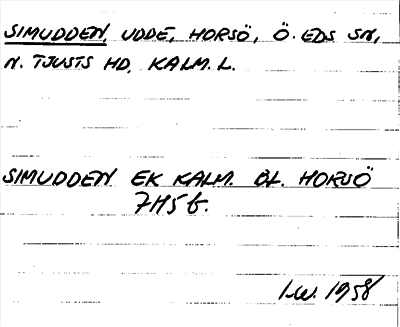 SIMUDDEN, UDDE, HORSÖ, Ö. EDS SN,
N. TJUSTS HD, KALM. L.
SIMUDDEN EK KALM. BL. HORSÖ
7H5b.
I.W. 1958